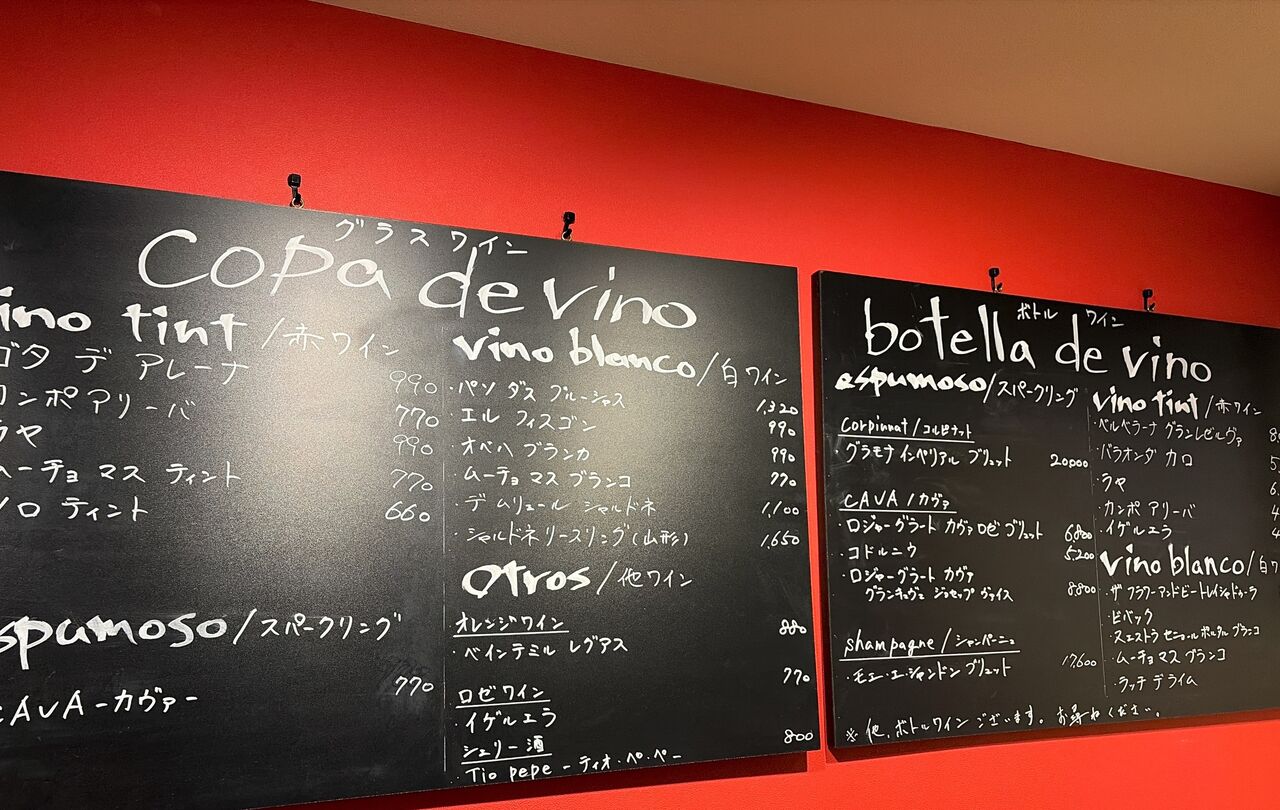 グラスワイン
Copa de vino
ino tint/赤ワイン
ゴタ デ アレーナ 990
カンポ アリーバ 770
ラヤ 990
ムーチョ マス ティント 770
ソロ ティント 660
spumoso/スパークリング
CAVA -カヴァ- 770
vino blanco/白ワイン
・パソ ダス ブルーシャス 1,320
・エル フィスゴン 990
・オベハ ブランカ 990
・ムーチョ マス ブランコ 770
・デ ムリュール シャルドネ 1,100
・シャルドネリースリング(山形) 1,650
otros/他ワイン
オレンジワイン
・ベインテミル レグアス 880
ロゼワイン
・イゲルエラ 770
シェリー酒
・Tio pepe -ティオ・ペ・ペー 800
ボトル ワイン
botella de vino
espumoso/スパークリング
Corpinnat/コルピナット
・グラモナ インペリアル ブリュット 20,000
CAVA/カヴァ
・ロジャーグラート カヴァ ロゼ ブリュット 6,800
・コドルニウ 5,200
・ロジャーグラート カヴァ
グランキュヴェ ジョセップ ヴァイス 8,800
shampagne/シャンパーニュ
・モエ・エ・シャンドン ブリュット 17,600
vino tint/赤ワイン
・ベルベラーナ グランレゼルヴァ
・バラオンダ カロ
・ラヤ
・カンポ アリーバ
・イゲルエラ
vino blanco/白ワ
・ザ フラワーアンドビー トレイシャドゥーラ
・ビバック
・スエストラ セニョール ポルタル ブランコ
・ムーチョ マス ブランコ
・ラッチ デライム
※他、ボトルワイン ございます。お尋ねください。